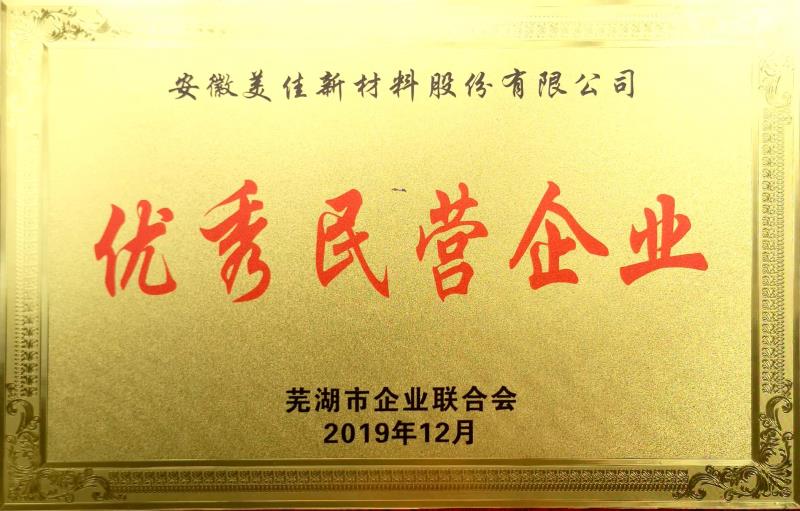 安徽美佳新材料股份有限公司
优秀民营企业
芜湖市企业联合会
2019年12月